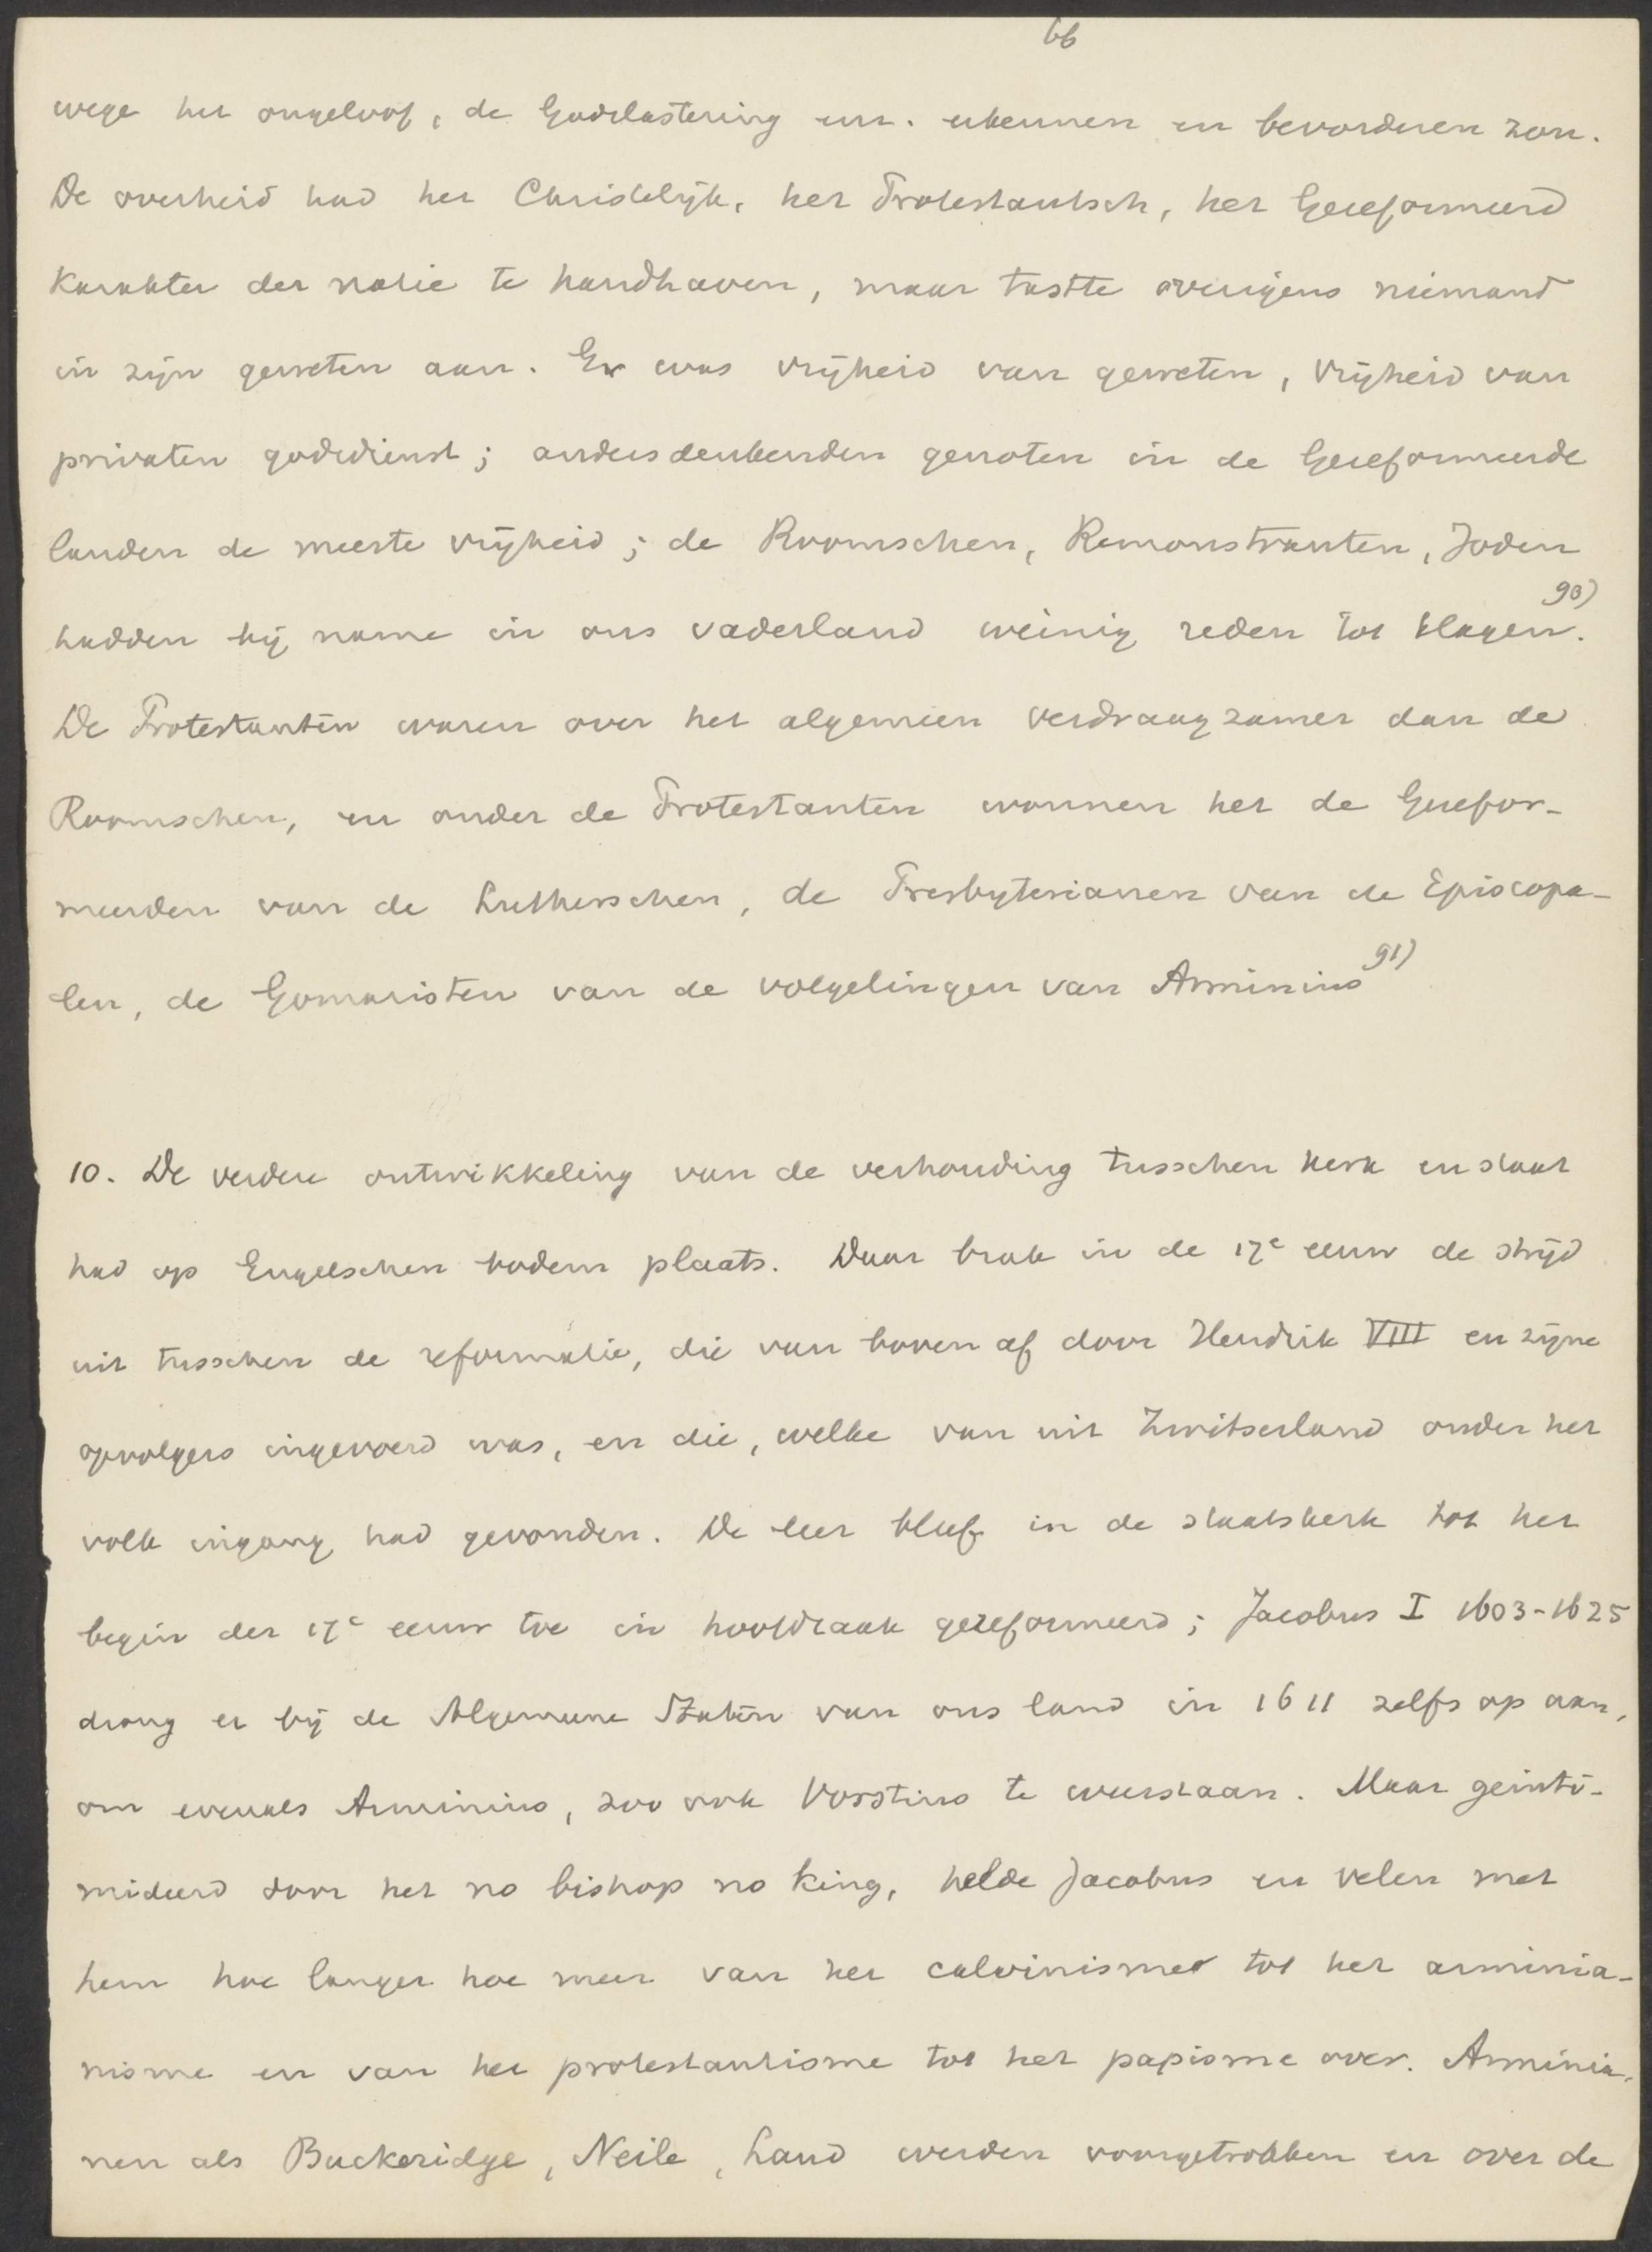 66
wege het ongeloof, de Godslastering enz. erkennen en bevorderen zou.
De overheid had het Christelijk, het Protestantsch, het Gereformeerd
karakter der natie te handhaven, maar tastte overigens niemand
in zijn geweten aan. Er was vrijheid van geweten, vrijheid van
privaten godsdienst; andersdenkenden genoten in de Gereformeerde
landen de meeste vrijheid; de Roomschen, Remonstranten, Joden
hadden bij name in ons vaderland weinig reden tot klagen. 90)
De Protestanten waren over het algemeen verdraagzamer dan de
Roomschen, en onder de Protestanten wonnen het de Gerefor-
meerden van de Lutherschen, de Presbyterianen van de Episcopa-
len, de Gomaristen van de volgelingen van Arminius 91)
10. De verdere ontwikkeling van de verhouding tusschen kerk en staat
had op Engelschen bodem plaats. Daar brak in de 17e eeuw de strijd
uit tusschen de reformatie, die van boven af door Hendrik VIII en zijne
opvolgers ingevoerd was, en die, welke van uit Zwitserland onder het
volk ingang had gevonden. De leer bleef in de staatskerk tot het
begin der 17e eeuw toe in hoofdzaak gereformeerd; Jacobus I 1603-1625
drong er bij de Algemeene Staten van ons land in 1611 zelfs op aan,
om evenals Arminius, zoo ook Vorstius te weerstaan. Maar geinti-
mideerd door het no bishop no king, helde Jacobus en velen met
hem hoe langer hoe meer van het calvinisme tot het arminia-
nisme en van het protestantisme tot het papisme over. Arminia-
nen als Buckeridge, Neile, Laud werden voorgetrokken en over de